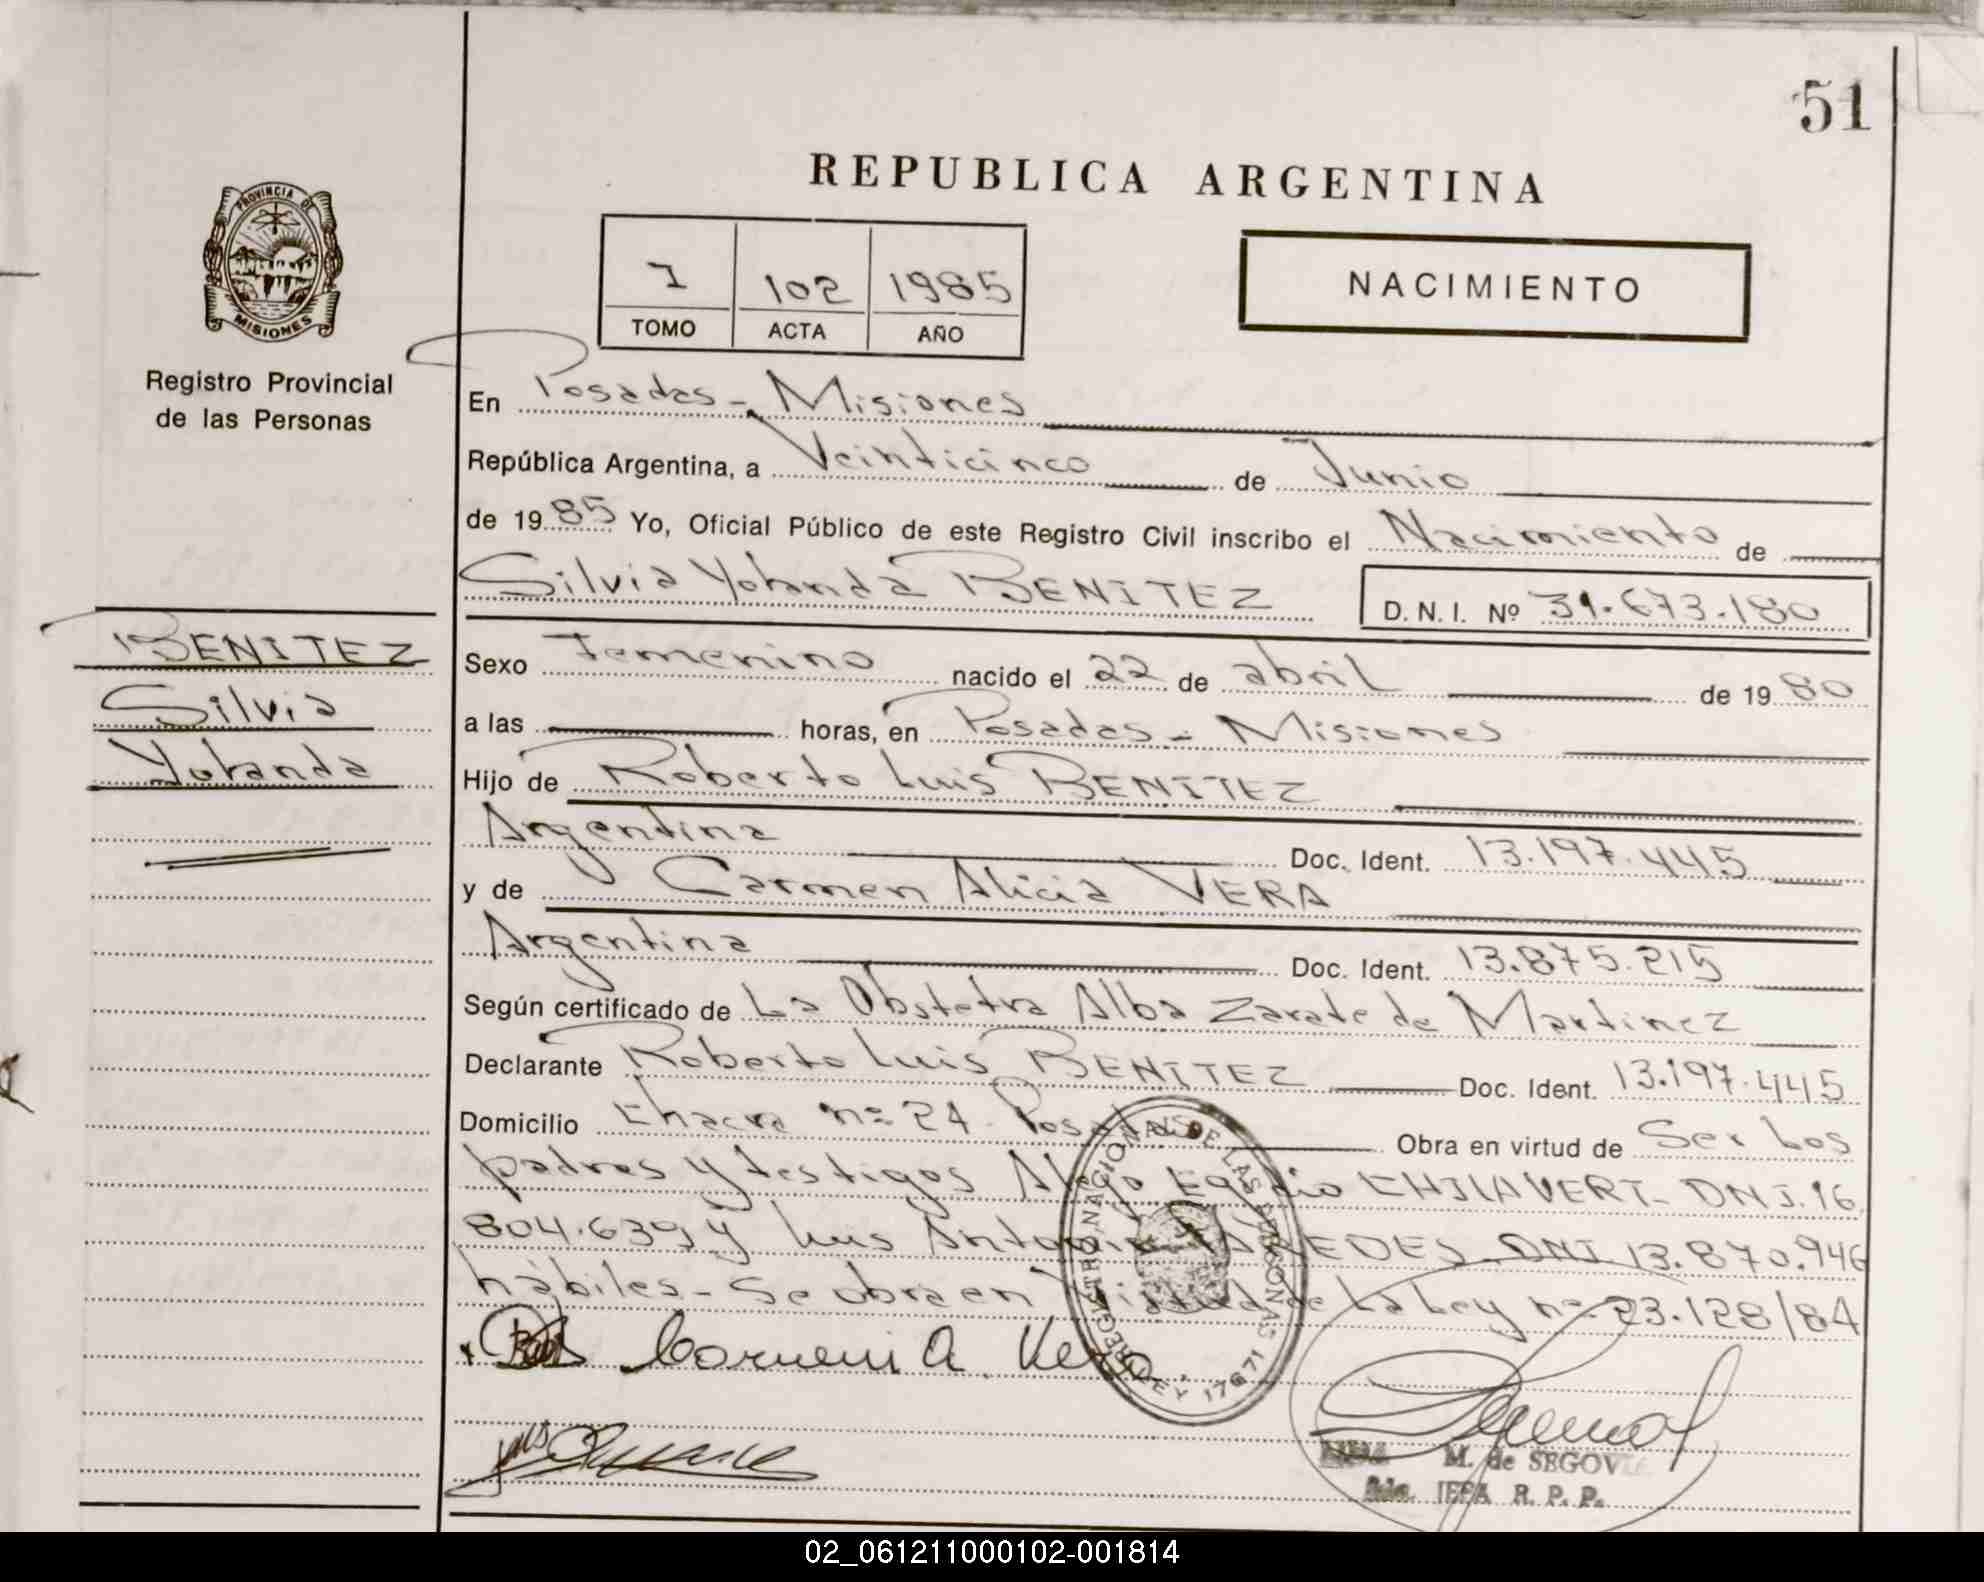 51
REPUBLICA ARGENTINA
PROVINCIA DE
MISIONES
Registro Provincial
de las Personas
I 102 1985
TOMO ACTA AÑO
NACIMIENTO
En Posadas - Misiones
República Argentina, a Veinticinco de Junio
de 1985 Yo, Oficial Público de este Registro Civil inscribo el Nacimiento de
Silvia Yolanda BENITEZ D. N. I. Nº 31.673.180
BENITEZ
Silvia
Yolanda
Sexo Femenino nacido el 22 de abril de 1980
a las horas, en Posadas - Misiones
Hijo de Roberto Luis BENITEZ
Argentina Doc. Ident. 13.197.445
y de Carmen Alicia VERA
Argentina Doc. Ident. 13.875.215
Según certificado de La Obstetra Alba Zarate de Martinez
Declarante Roberto Luis BENITEZ Doc. Ident. 13.197.445
Domicilio Chacra nº 24 - Posadas Obra en virtud de Ser Los
padres y testigos Alejo Egidio CHILAVERT - DNI. 16.
804.639 y Luis Antonio PAREDES DNI 13.870.946
hábiles - Se obra en Virtud de La Ley nº 23.128/84
Carmen A. Vera
REGISTRO NACIONAL DE LAS PERSONAS
LEY 17671
M. de SEGOVIA
JEFA R. P. P.
02_061211000102-001814